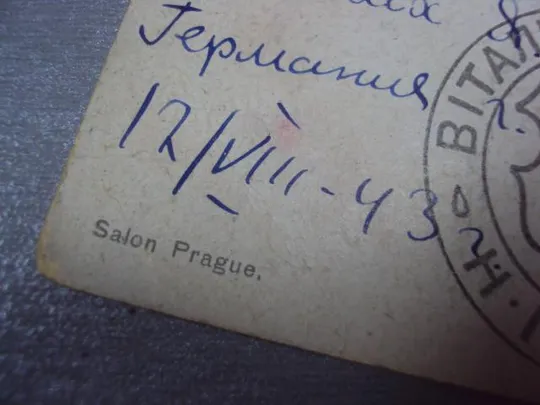 Германия г.
12/VIII-43 г.
Salon Prague.
ВІТАЛ